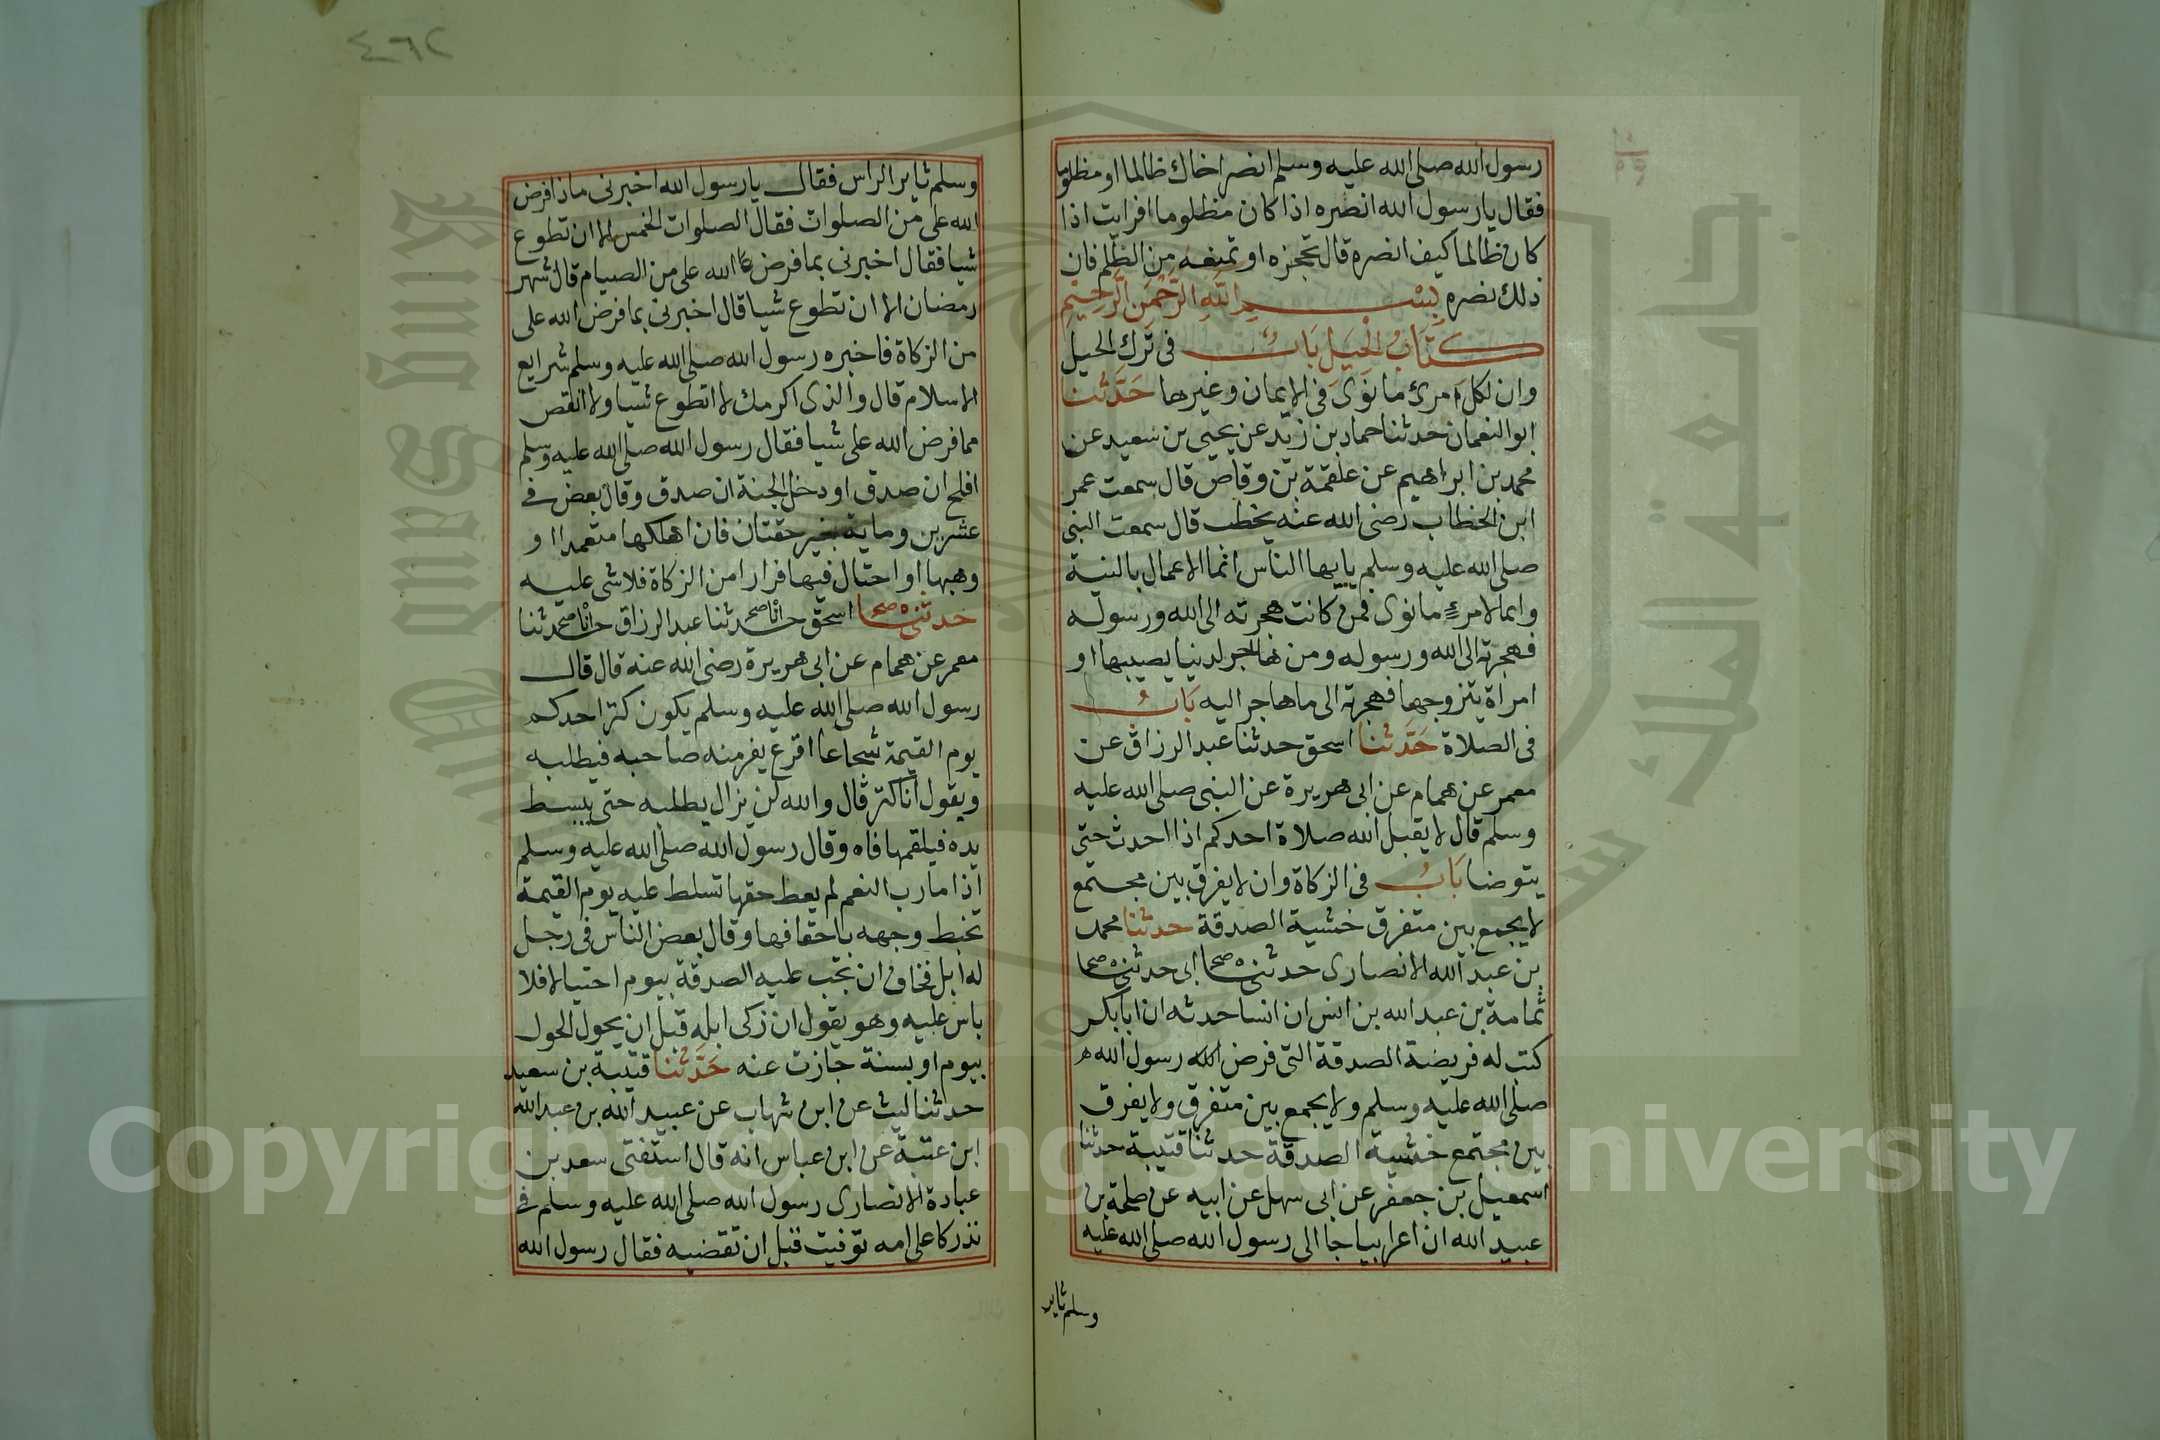 رسول الله صلى الله عليه وسلم انصر اخاك ظالما او مظلوما
فقال يا رسول الله انصره اذا كان مظلوما افرايت اذا
كان ظالما كيف انصره قال تحجزه او تمنعه من الظلم فان
ذلك نصره بسم الله الرحمن الرحيم
كتاب الحيل باب في ترك الحيل
وان لكل امرئ ما نوى في الايمان وغيرها حدثنا
ابو النعمان حدثنا حماد بن زيد عن يحيى بن سعيد عن
محمد بن ابراهيم عن علقمة بن وقاص قال سمعت عمر
ابن الخطاب رضي الله عنه يخطب قال سمعت النبي
صلى الله عليه وسلم يايها الناس انما الاعمال بالنية
وانما لامرئ ما نوى فمن كانت هجرته الى الله ورسوله
فهجرته الى الله ورسوله ومن هاجر لدنيا يصيبها او
امراة يتزوجها فهجرته الى ما هاجر اليه باب
في الصلاة حدثنا اسحق حدثنا عبد الرزاق عن
معمر عن همام عن ابي هريرة عن النبي صلى الله عليه
وسلم قال لا يقبل الله صلاة احدكم اذا احدث حتى
يتوضا باب في الزكاة وان لا يفرق بين مجتمع
لا يجمع بين متفرق خشية الصدقة حدثنا محمد
بن عبد الله الانصاري حدثني ابي حدثني
ثمامة بن عبد الله بن انس ان انسا حدثه ان ابا بكر
كتب له فريضة الصدقة التي فرض الله رسول الله
صلى الله عليه وسلم ولا يجمع بين متفرق ولا يفرق
بين مجتمع خشية الصدقة حدثنا قتيبة حدثنا
اسمعيل بن جعفر عن ابي سهل عن ابيه عن طلحة بن
عبيد الله ان اعرابيا جا الى رسول الله صلى الله عليه
وسلم ثاير
٤٦٢
وسلم ثاير الراس فقال يا رسول الله اخبرني ماذا فرض
الله علي من الصلوات فقال الصلوات الخمس الا ان تطوع
شيا فقال اخبرني بما فرض الله علي من الصيام قال شهر
رمضان الا ان تطوع شيا قال اخبرني بما فرض الله علي
من الزكاة فاخبره رسول الله صلى الله عليه وسلم شرايع
الاسلام قال والذي اكرمك لا اتطوع شيا ولا انقص
مما فرض الله علي شيا فقال رسول الله صلى الله عليه وسلم
افلح ان صدق او دخل الجنة ان صدق وقال بعض في
عشرين وماية بعير حقتان فان اهلكها متعمدا او
وهبها او احتال فيها فرارا من الزكاة فلا شي عليه
حدثني اسحق حدثنا عبد الرزاق حدثنا
معمر عن همام عن ابي هريرة رضي الله عنه قال قال
رسول الله صلى الله عليه وسلم يكون كنز احدكم
يوم القيمة شجاعا اقرع يفر منه صاحبه فيطلبه
ويقول انا كنز قال والله لن يزال يطلبه حتى يبسط
يده فيلقمها فاه وقال رسول الله صلى الله عليه وسلم
اذا ما رب النعم لم يعط حقها تسلط عليه يوم القيمة
تخبط وجهه باحقافها وقال بعض الناس في رجل
له ابل فخاف ان تجب عليه الصدقة بيوم احتيالا فلا
باس عليه وهو يقول ان زكى ابله قبل ان يحول الحول
بيوم او بسنة جازت عنه حدثنا قتيبة بن سعيد
حدثنا ليث عن ابن شهاب عن عبيد الله بن عبد الله
ابن عتبة عن ابن عباس انه قال استفتى سعد بن
عبادة الانصاري رسول الله صلى الله عليه وسلم في
نذر كا على امه توفيت قبل ان تقضيه فقال رسول الله
Copyright © King Saud University
جامعة الملك سعود
King Saud University